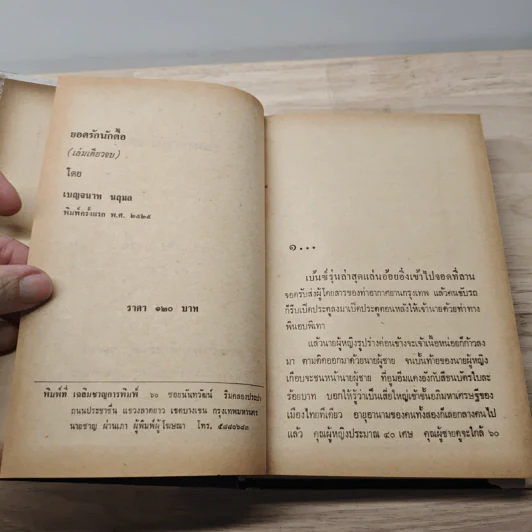 ยอดรักนักดื้อ
(เล่มเดียวจบ)
โดย
เบญจนาท นฤมล
พิมพ์ครั้งแรก พ.ศ. ๒๕๒๕
ราคา ๑๒๐ บาท
พิมพ์ที่ เฉลิมชาญการพิมพ์ ๖๐ ซอยนันทวัฒน์ ริมคลองประปา
ถนนประชาชื่น แขวงลาดยาว เขตบางเขน กรุงเทพมหานคร
นายชาญ ผ่านเภา ผู้พิมพ์ผู้โฆษณา โทร.
๑...
เบ็นซ์รุ่นล่าสุดแล่นอ้อยอิ่งเข้าไปจอดที่ลาน
จอดรับส่งผู้โดยสารของท่าอากาศยานกรุงเทพ แล้วคนขับรถ
ก็รีบเปิดประตูลงมาเปิดประตูตอนหลังให้เจ้านายด้วยท่าทาง
พินอบพิเทา
แล้วนายผู้หญิงรูปร่างค่อนข้างจะเจ้าเนื้อหน่อยก็ก้าวลง
มา ตามติดออกมาด้วยนายผู้ชาย จนบั้นท้ายของนายผู้หญิง
เกือบจะชนหน้านายผู้ชาย ที่อมยิ้มแคงยังกับสีธนบัตรใบละ
ร้อยบาท บอกให้รู้ว่าเป็นเสี่ยใหญ่เข้าขั้นอภิมหาเศรษฐีของ
เมืองไทยทีเดียว อายุอานามของคนทั้งสองก็เลยกลางคนไป
แล้ว คุณผู้หญิงประมาณ ๔๐ เศษ คุณผู้ชายดูจะใกล้ ๖๐